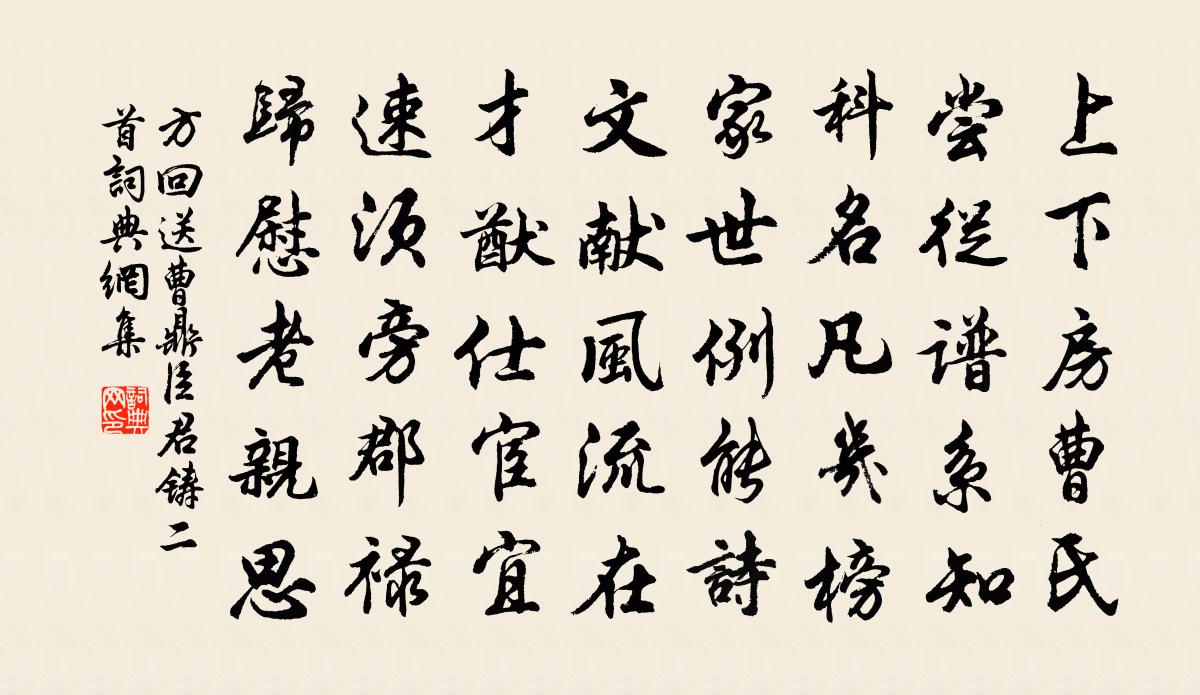 上下房曹民
尝從谱系知
科名凡幾榜
家世例能詩
文献風流在
才猷仕宦宜
速須旁郡禄
歸慰老親思
方回送曹鼎臣君铸二
首詞典網集
詞典
网印